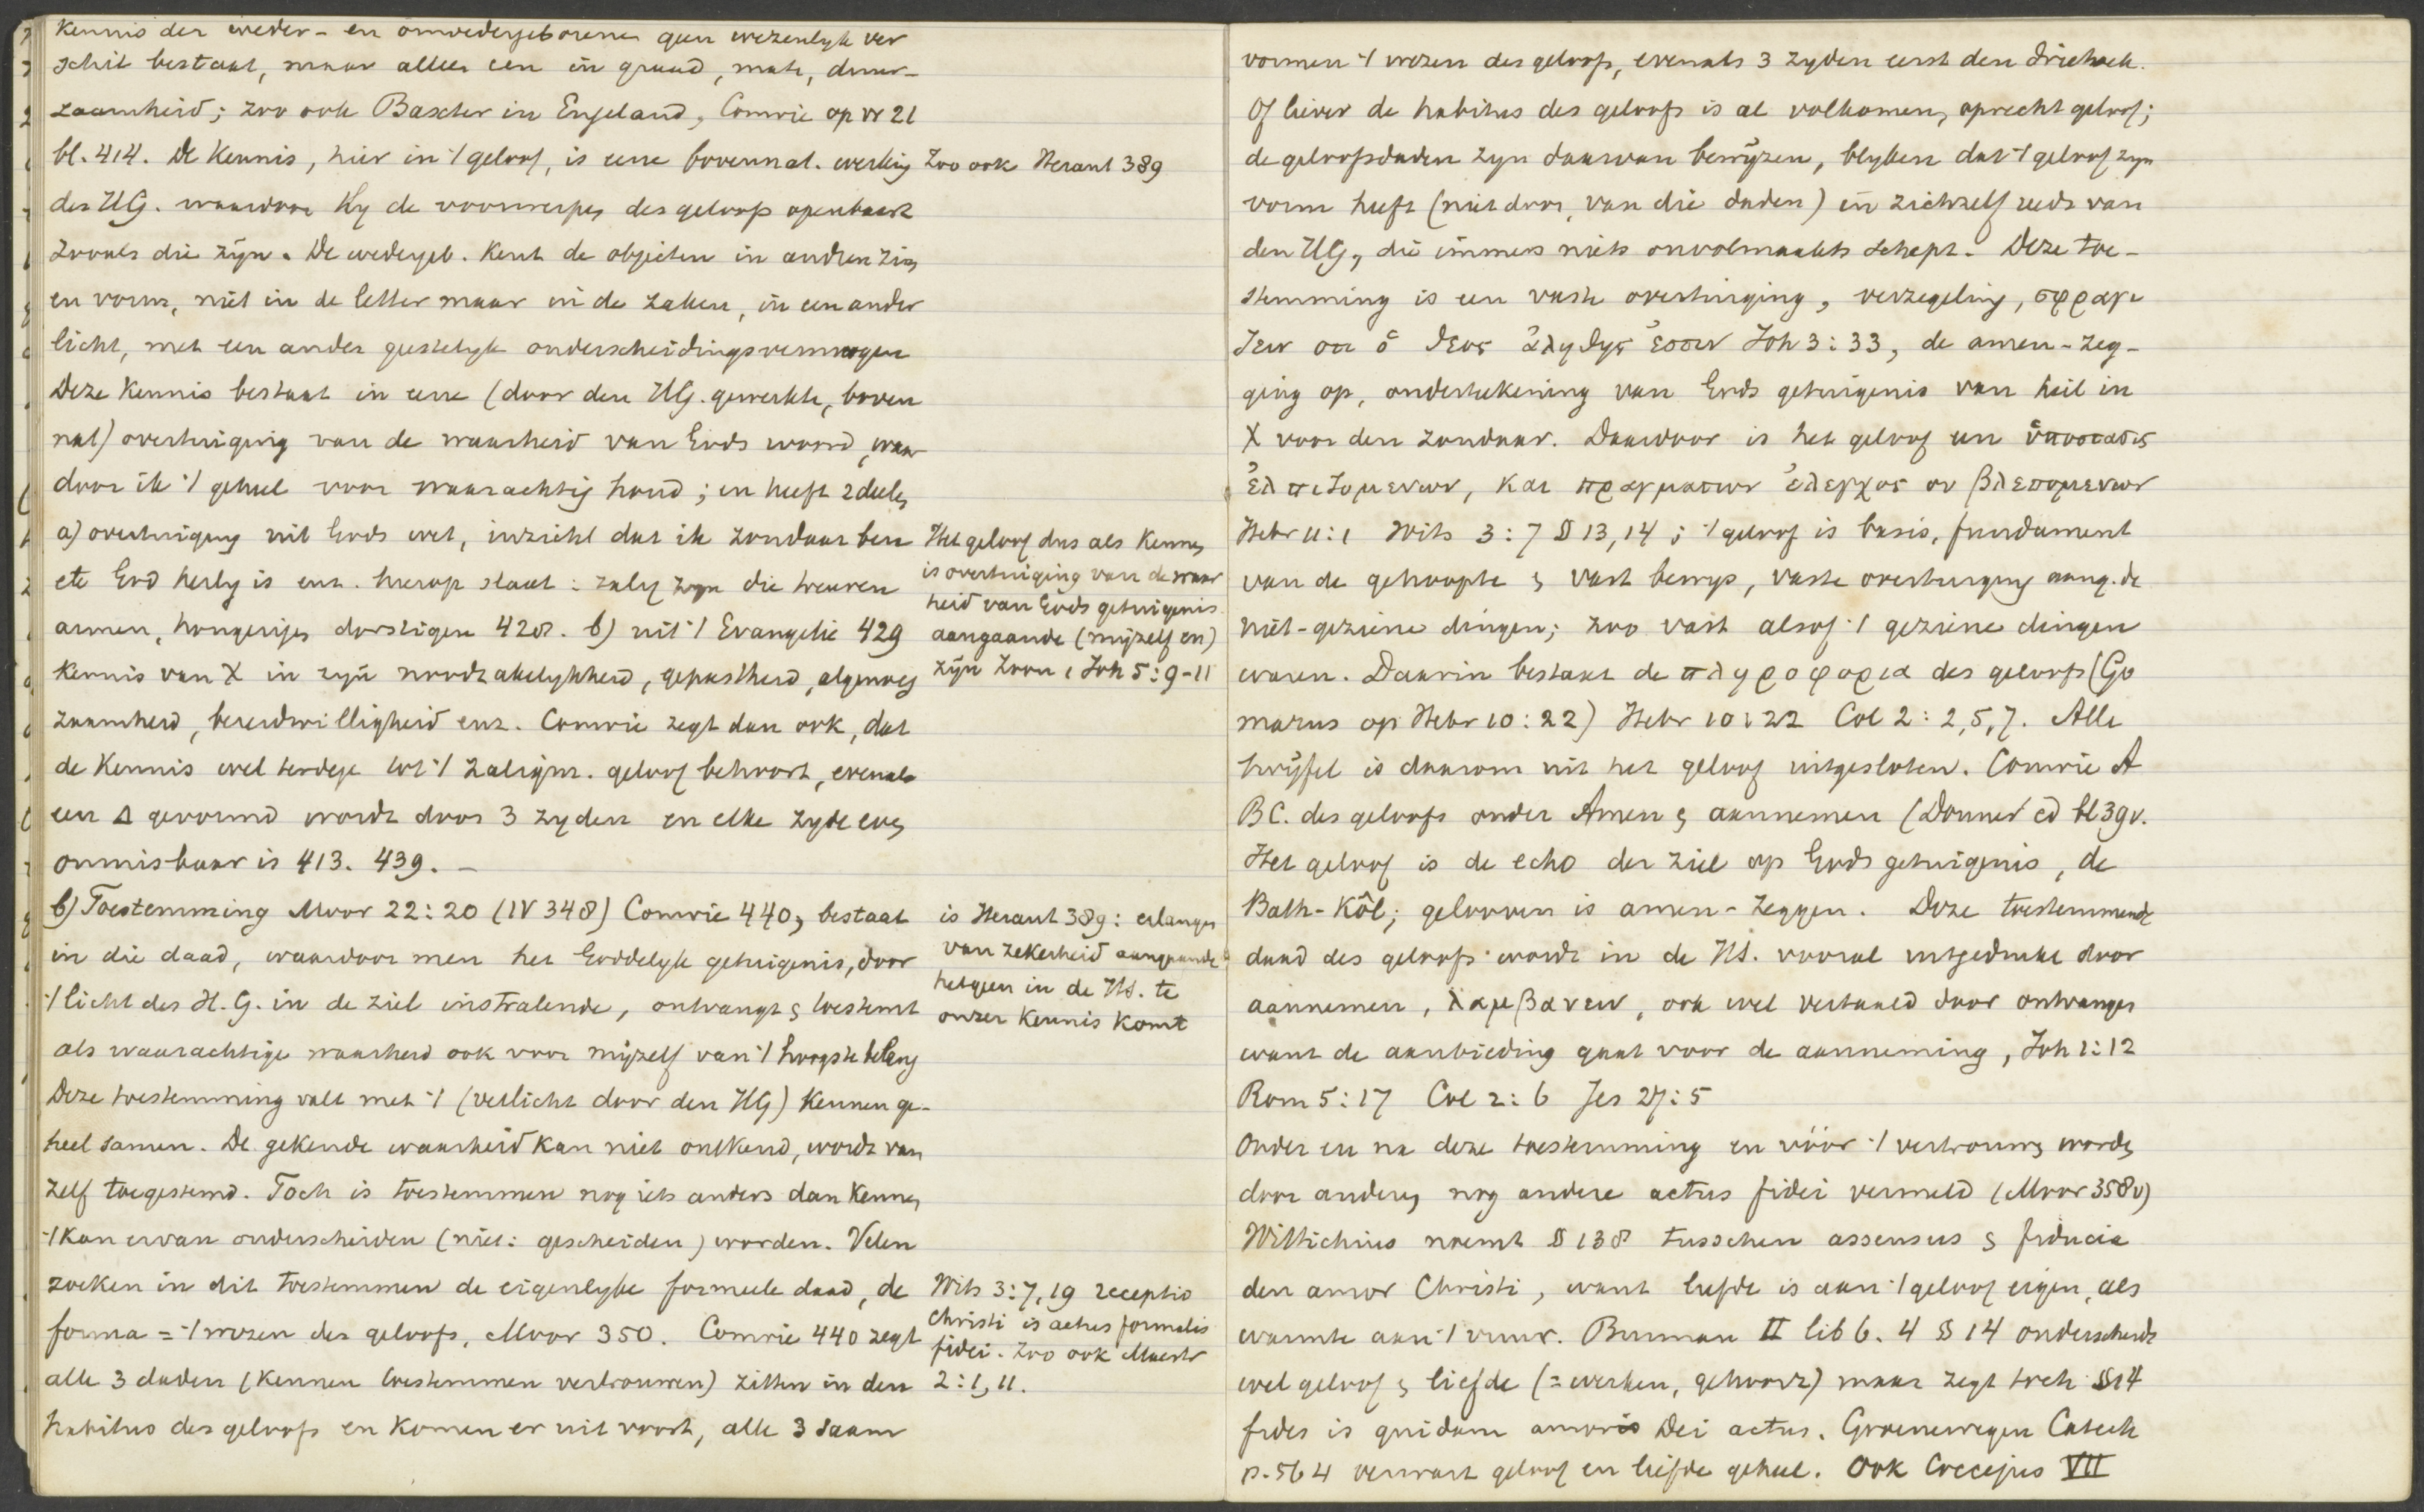 kennis der weder- en onwedergeborenen geen wezenlyk ver
schil bestaat, maar alleen een in graad, mate, duur-
zaamheid; zoo ook Baxter in Engeland, Comrie op vr 21
bl. 414. De kennis, hier in 't geloof, is eene bovennat. werking
des HG. waardoor Hy de voorwerpen des geloofs openbaart
zooals die zijn. De wedergeb. kent de objecten in andren zin
en vorm, niet in de letter maar in de zaken, in een ander
licht, met een ander geestelyk onderscheidingsvermogen
Deze kennis bestaat in eene (door den HG. gewerkte, boven
nat) overtuiging van de waarheid van Gods woord, waar
door ik 't geheel voor waarachtig houd; en heeft 2 deelen
a) overtuiging uit Gods wet, inzicht dat ik zondaar ben
etc God heilig is enz. hierop slaat: zalig zyn die treuren
armen, hongerigen dorstigen 428. b) uit 't Evangelie 429
kennis van X in zijn noodzakelykheid, gepastheid, algenoeg
zaamheid, bereidwilligheid enz. Comrie zegt dan ook, dat
de kennis wel terdege tot 't zaligm. geloof behoort, evenals
een Δ gevormd wordt door 3 zyden en elke zyde even
onmisbaar is 413. 439. –
b) Toestemming Moor 22:20 (IV 348) Comrie 440, bestaat
in die daad, waardoor men het Goddelyk getuigenis, door
't licht des H.G. in de ziel instralende, ontvangt & toestemt
als waarachtige waarheid ook voor mijzelf van 't hoogste belang
Deze toestemming valt met 't (verlicht door den HG) kennen ge-
heel samen. De gekende waarheid kan niet ontkend, wordt van
zelf toegestemd. Toch is toestemmen nog iets anders dan kennen
't kan ervan onderscheiden (niet: gescheiden) worden. Velen
zoeken in dit toestemmen de eigenlyke formeele daad, de
forma = 't wezen des geloofs, Moor 350. Comrie 440 zegt
alle 3 daden (kennen toestemmen vertrouwen) zitten in den
habitus des geloofs en komen er uit voort, alle 3 saam
Zoo ook Heraut 389
Het geloof dus als kennen
is overtuiging van de waar
heid van Gods getuigenis
aangaande (mijzelf en)
zijn Zoon 1 Joh 5:9-11
is Heraut 389: erlangen
van zekerheid aangaande
hetgeen in de HS. te
onzer kennis komt
Wits 3:7, 19 receptio
Christi is actus formalis
fidei. Zoo ook Maestr
2:1, 11.
vormen 't wezen des geloofs, evenals 3 zyden eerst den driehoek.
Of liever de habitus des geloofs is al volkomen, oprecht geloof;
de geloofsdaden zyn daarvan bewijzen, blyken dat 't geloof zyn
vorm heeft (niet door, van die daden) in zichzelf reeds van
den HG, die immers niets onvolmaakts schept. Deze toe-
stemming is een vaste overtuiging, verzegeling, σφραγι
ζειν οτι ὁ θεος ἀληθης ἐστιν Joh 3:33, de amen-zeg-
ging op, onderteekening van Gods getuigenis van heil in
X voor den zondaar. Daardoor is het geloof een ὑποστασις
ἐλπιζομενων, και πραγματων ἐλεγχος ου βλεπομενων
Hebr 11:1 Wits 3:7 § 13, 14; 't geloof is basis, fundament
van de gehoopte & vast bewys, vaste overtuiging aang. de
niet-geziene dingen; zoo vast alsof 't geziene dingen
waren. Daarin bestaat de πληροφορια des geloofs (Go
marus op Hebr 10:22) Hebr 10:22 Col 2:2, 5, 7. Alle
twijfel is daarom uit het geloof uitgesloten. Comrie A
BC. des geloofs onder Amen & aannemen (Donner ed bl 39v.
Het geloof is de echo der ziel op Gods getuigenis, de
Bath-Kôl; gelooven is amen-zeggen. Deze toestemmende
daad des geloofs wordt in de HS. vooral uitgedrukt door
aannemen, λαμβανειν, ook wel vertaald door ontvangen
want de aanbieding gaat voor de aanneming, Joh 1:12
Rom 5:17 Col 2:6 Jes 27:5
Onder en na deze toestemming en vóór 't vertrouwen worden
door anderen nog andere actus fidei vermeld (Moor 358v)
Wittichius noemt § 138 tusschen assensus & fiducia
den amor Christi, want liefde is aan 't geloof eigen, als
warmte aan 't vuur. Burman II lib 6. 4 § 14 onderscheidt
wel geloof & liefde (= werken, gehoorz) maar zegt toch §14
fides is quidam amoris Dei actus. Groenewegen Catech
p. 564 verwart geloof en liefde geheel. Ook Coccejus VII